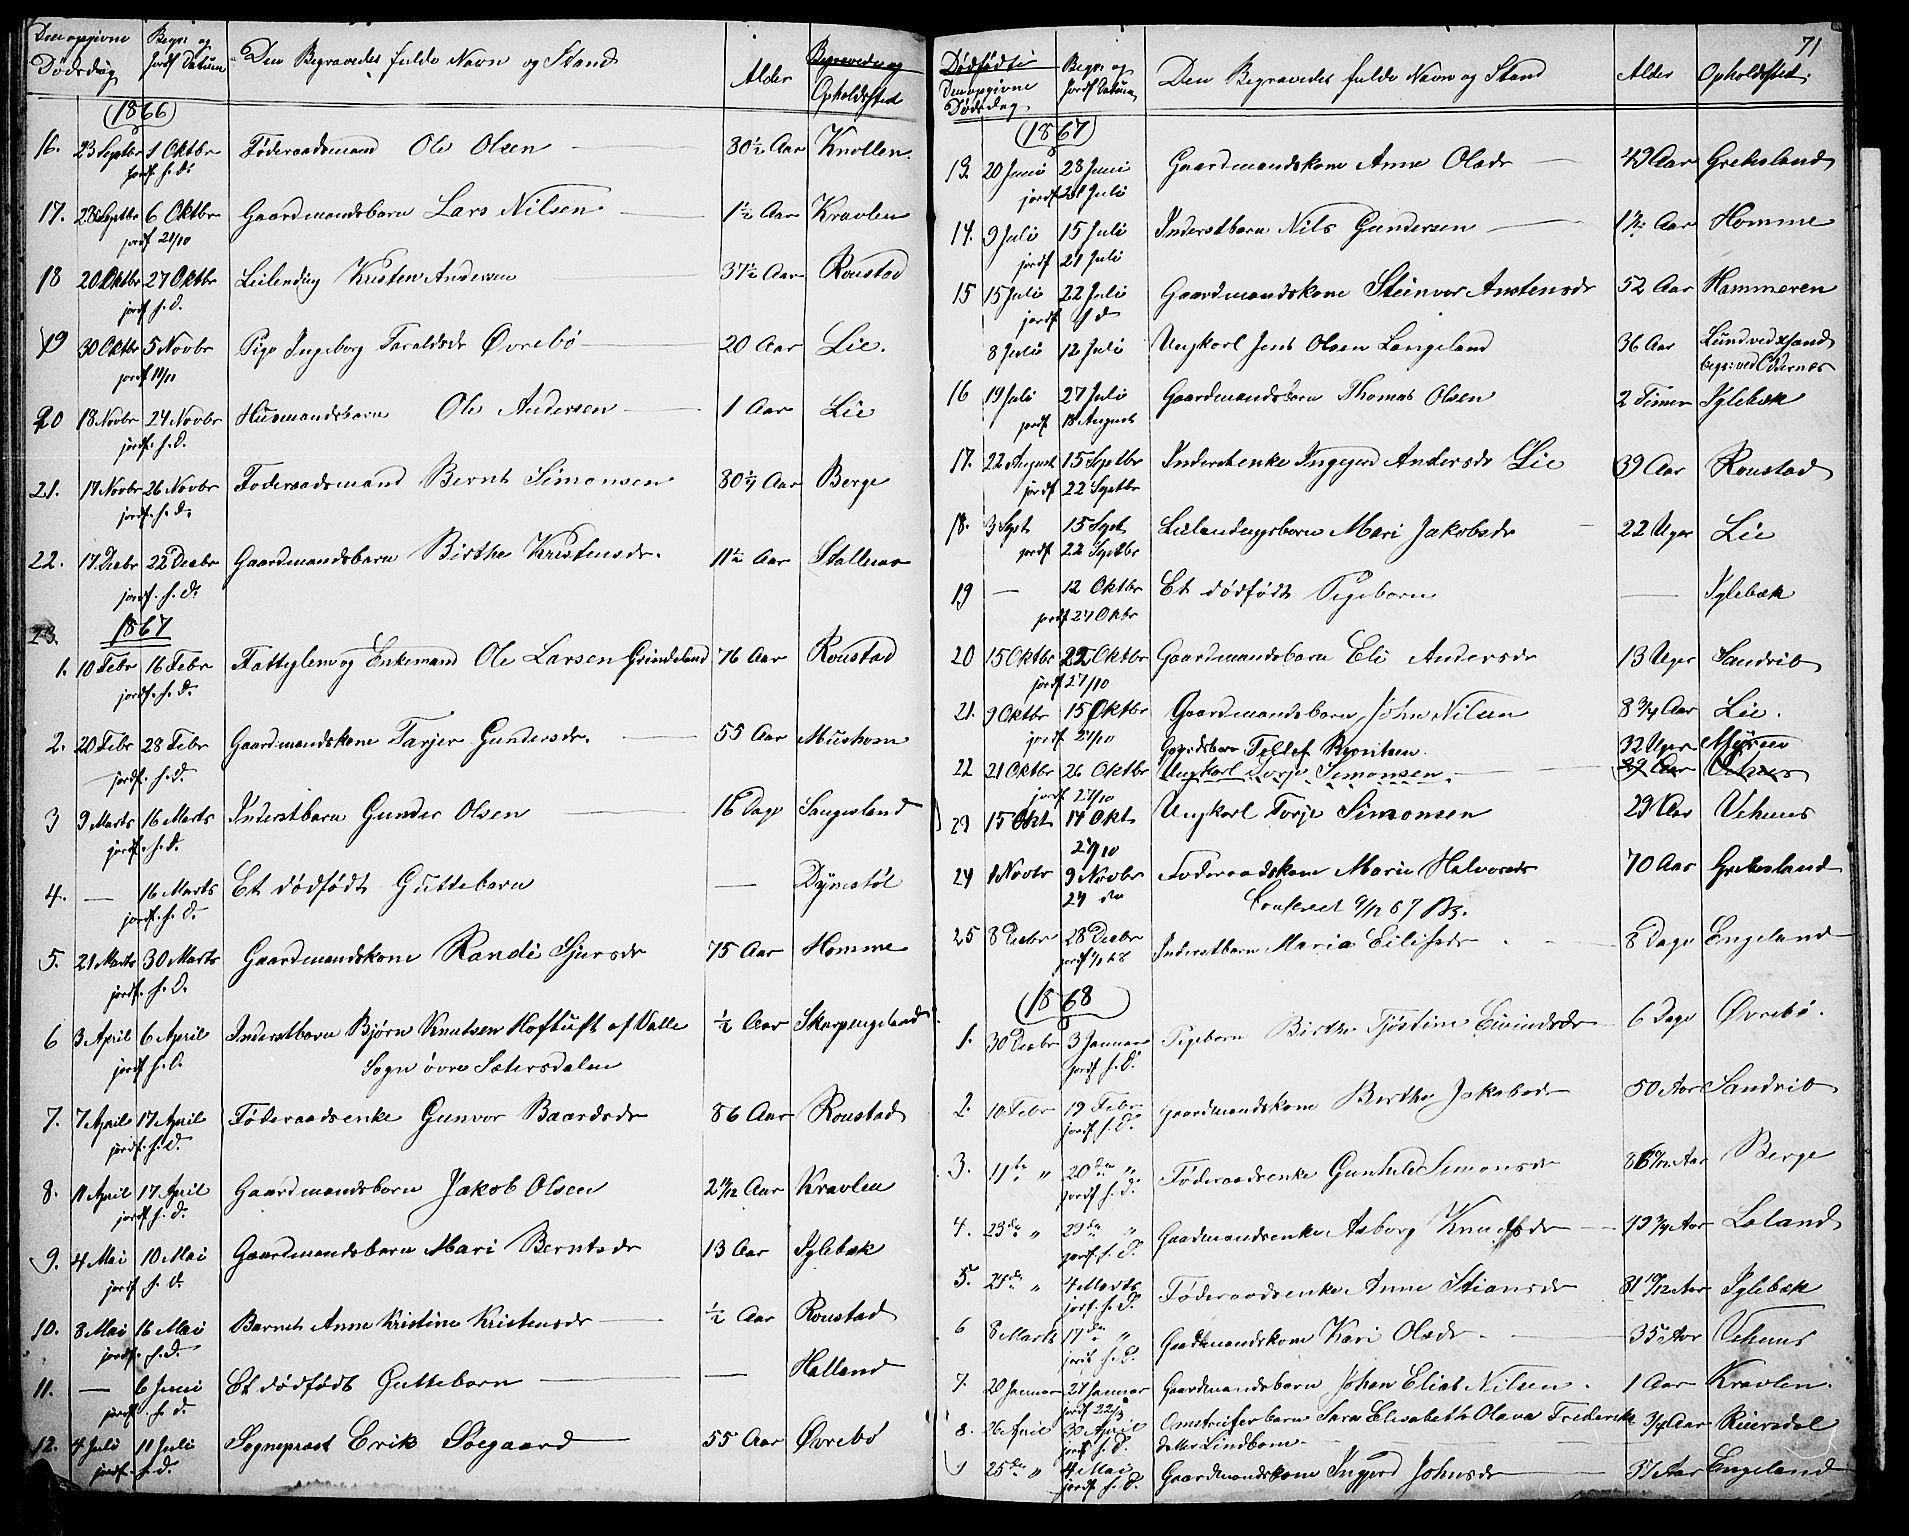 Den opgivne Dødsdag | Begr: og jordf Datum | Den Begravedes fulde Navn og Stand | Alder | Opholdssted
1866
16. 23 Septbr 1 Oktbr Føderaadsmand Ole Olsen 80½ Aar Knollen
jordf. s. d.
17. 28 Septbr 6 Oktbr Gaardmandsbarn Lars Nilsen 1½ Aar Kravlen
jordf 21/10
18 20 Oktbr 27 Oktbr Leilending Kristen Andersen 37½ Aar Roustad
jordf s. d.
19 30 Oktbr 5 Novbr Pige Ingeborg Taraldsdr Øvrebø 20 Aar Lie.
jordf 11/11
20 18 Novbr 24 Novbr Husmandsbarn Ole Andersen 1 Aar Lie
jordf. s. d.
21. 17 Novbr 26 Novbr Føderaadsmand Bernt Simonsen 80 Aar Berge
jordf. s. d.
22. 17 Decbr 22 Decbr Gaardmandsbarn Birthe Kristensdr. 11½ Aar Stallemo
jordf. s. d.
23. 1867
1. 10 Febr 16 Febr Fattiglem og Enkemand Ole Larsen Grindeland 76 Aar Roustad
jordf. s. d.
2. 20 Febr 28 Febr Gaardmandskone Tarjer Gundersdr. 55 Aar Mushom
jordf. s. d.
3 9 Marts 16 Marts Inderstbarn Gunder Olsen 16 Dage Saugesland
jordf. s. d.
4. — 16 Marts Et dødfødt Guttebarn — Dynestøl
jordf. s. d.
5. 21 Marts 30 Marts Gaardmandskone Randi Sjursdr 75 Aar Homme
jordf. s. d.
6 3 April 6 April Inderstbarn Bjørn Knutsen Hoftuft af Valle ½ Aar Skarpengeland
jordf s. d. Sogn øvre Sætersdalen
7. 7 April 17 April Føderaadsenke Gunvor Baardsdr 86 Aar Roustad
jordf. s. d.
8. 11 April 17 April Gaardmandsbarn Jakob Olsen 2 11/12 Aar Kravlen
jordf s. d.
9. 4 Mai 10 Mai Gaardmandsbarn Mari Berntsdr 13 Aar Iglebæk
jordf s. d.
10. 8 Mai 16 Mai Barnet Anne Kristine Kristensdr ½ Aar Roustad
jordf. s. d.
11. — 6 Juni Et dødfødt Guttebarn — Halland
jordf. s. d.
12. 4 Juli 11 Juli Sogneprest Erik Søegaard 55 Aar Øvrebø
jordf. s. d.
71
Dødfødte
Den opgivne Dødsdag | Begr: og jordf Datum | Den Begravedes fulde Navn og Stand | Alder | Opholdssted.
1867
13. 20 Juni 28 Juni Gaardmandskone Anne Olsdr 49 Aar Greheland
jordf 21 Juli
14. 9 Juli 15 Juli Inderstbarn Nils Gundersen Aar Homme
jordf 21 Juli
15 15 Juli 22 Juli Gaardmandskone Steinvor Anstensdr 52 Aar Hammeren
jordf s d
8 Juli 12 Juli Ungkarl Jens Olsen Langeland 36 Aar Lund ved Xsand
begr: ved Oddernes
16 19 Juli 27 Juli Gaardmandsbarn Thomas Olsen 2 Timer Iglebæk
jordf 18 August
17. 22 August 15 Septbr Inderstenke Ingeged Andersdr Lie 39 Aar Roustad
jordf 22 Septbr
18. 3 Sept 15 Sept Leilendingsbarn Mari Jakobsdr 22 Uger Lie
jordf 22 Septbr
19 — 12 Oktbr Et dødfødt Pigebarn — Iglebæk
jordf 27 Oktbr
20 15 Oktbr 22 Oktbr Gaardmandsbarn Eli Andersdr 13 Uger Sandrib
jordf 27/10
21. 9 Oktbr 15 Oktbr Gaardmandsbarn John Nilsen 8 3/4 Aar Lie.
jordf 27/10
Gaardsbarn Tellef Berntsen. 32 Uger Myren
22 21 Oktbr 26 Oktbr Ungkarl Torje Simonsen. 29 Aar Vehus
jordf 27/10
23 15 Okt 17 Okt Ungkarl Torje Simonsen 29 Aar Vehuus
27/10
24 1 Novbr 9 Novbr Føderaadskone Marie Halvorsdr 70 Aar Greheland
24 do Confereret 9/12 67
25 8 Decbr 28 Decbr Inderstbarn Maria Eilifsdr 8 Dage Engeland
jordf 1/1 68
1868
1. 30 Decbr 3 Januar Pigebarn Birthe Tjøstine Eivindsdr 6 Dage Øvrebø.
jordf s. d.
2. 10 Febr 19 Febr Gaardmandskone Birthe Jakobsdr 50 Aar Sandrib
jordf s. d.
3. 11te " 20de " Føderaadsenke Gunhild Simonsdr Aar Berge
jordf s. d.
4. 23de " 29de " Gaardmandsenke Asborg Knudsdr 49 3/4 Aar Loland
jordf. s. d.
5. 25de " 4 Marts Føderaadsenke Anne Stiansdr 81 10/12 Aar Iglebæk
jordf. s. d.
6 8 Marts 17de " Gaardmandskone Kari Olsdr. 35 Aar Vehuus
jordf s. d.
7. 20 Januar 27 Januar Gaardmandsbarn Johan Elias Nilsen. 1 Aar Kravlen.
jordf 22/3
8. 26 April 30 April Omstreiferbarn Sara Elisabeth Olava Frederik 3/4 Aar Reiersdal
jordf s. d. datter Lindbom
9 25de " 4 Mai Gaardmandskone Ingjerd Johnsdr 57 Aar Engeland
jordf s. d.